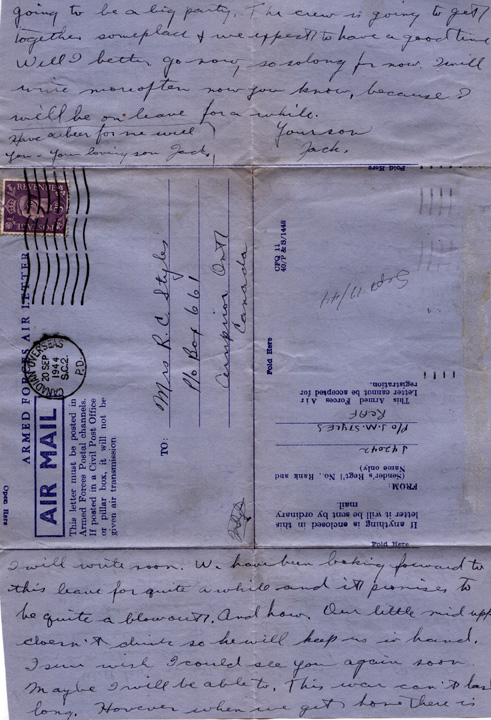 going to be a big party. The crew is going to get
together someplace & we expect to have a good time
Well I better go now, so solong for now. I will
write more often now you know, because I
will be on leave for a while.
Have a beer for me will
you - Your loving son Jack,
Your son
Jack.
Fold Here
REVENUE
ARMED FORCES AIR LETTER
CANADIAN OVERSEAS
20 SEP
1944
S.C.2.
P.O.
AIR MAIL
This letter must be posted in
Armed Forces Postal channels.
If posted in a Civil Post Office
or pillar box, it will not be
given air transmission
Open Here
TO:
Mrs R. C. Styles
P/o Box 661
Arnprior Ont
Canada
CFQ 11
40/P & S/1448
Fold Here
Sept 17/44
This Armed Forces Air
Letter cannot be accepted for
registration.
FROM:
(Sender's Regt'l No., Rank, and
Name only)
J42042
P/o J.M. STYLES
RCAF
If anything is enclosed in this
letter it will be sent by ordinary
mail.
Fold Here
I will write soon. We have been looking forward to
this leave for quite a while and it promises to
be quite a blowout. And how. Our little mid upp
doesn't drink so he will keep us in hand.
I sure wish I could see you again soon.
Maybe I will be able to. This war can't las
long. However when we get home there is